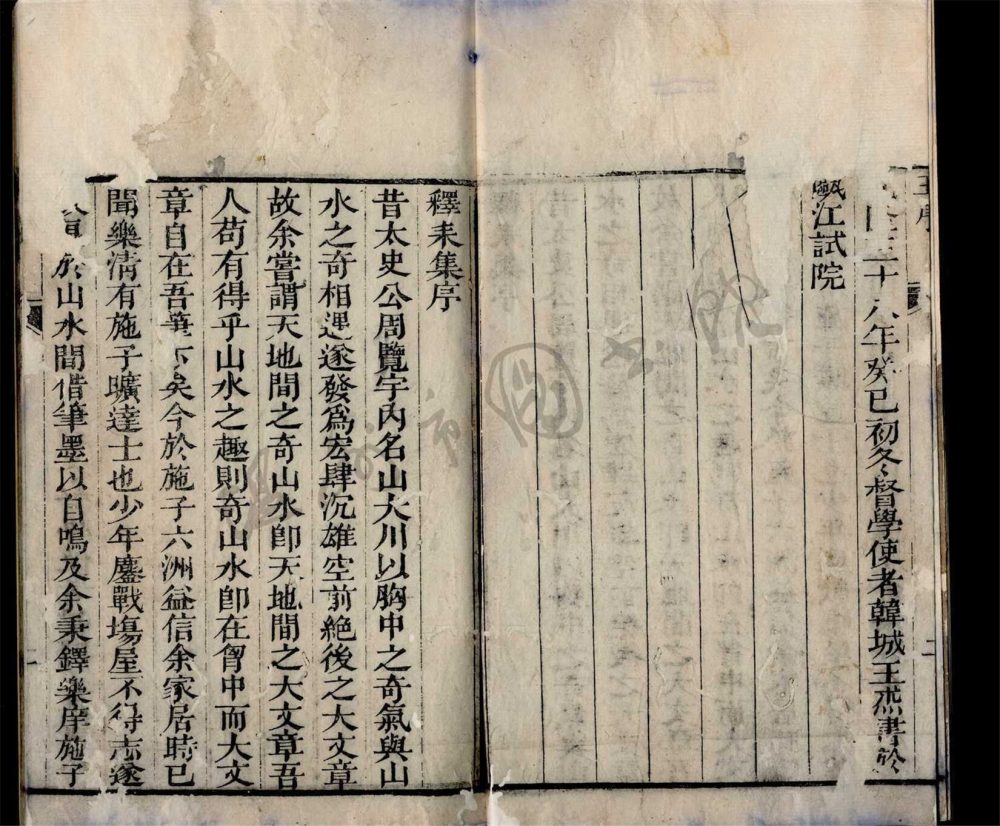 王序
隆三十八年癸巳初冬督學使者韓城王杰書於
甌江試院
二
釋耒集序
昔太史公周覽宇內名山大川以胸中之奇氣與山
水之奇相遇遂發爲宏肆沉雄空前絕後之大文章
故余嘗謂天地間之奇山水卽天地間之大文章吾
人苟有得乎山水之趣則奇山水卽在胷中而大文
章自在吾筆下矣今於施子六洲益信余家居時已
聞樂清有施子曠達士也少年鏖戰塲屋不得志遂
於山水間借筆墨以自鳴及余秉鐸樂庠施子
一
圖